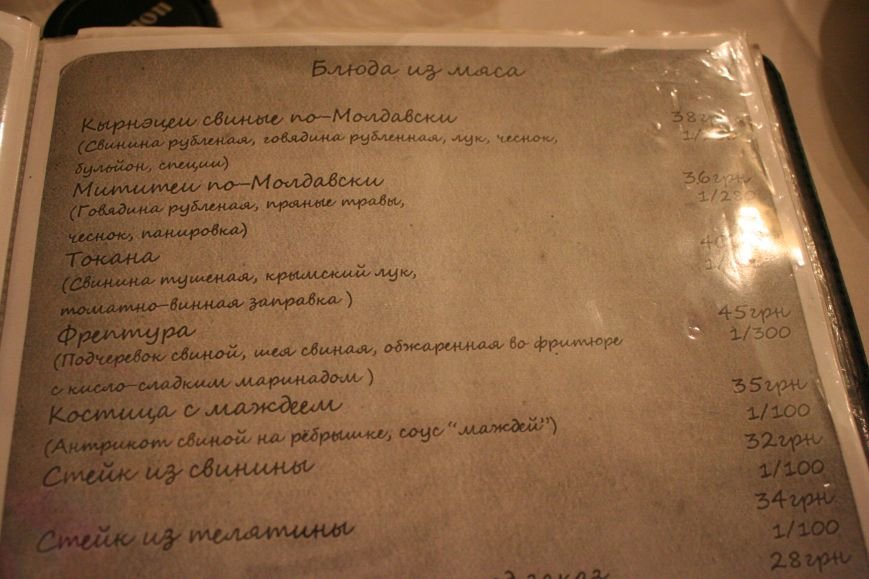 Canon
Блюда из мяса
Кырнэцеи свиные по-Молдавски 38грн
(Свинина рубленая, говядина рубленная, лук, чеснок,
бульйон, специи)
Мититеи по-Молдавски 36грн
(Говядина рубленая, пряные травы, 1/280
чеснок, панировка)
Токана
(Свинина тушеная, крымский лук,
томатно-винная заправка )
Фрептура 45грн
(Подчеревок свиной, шея свиная, обжаренная во фритюре 1/300
с кисло-сладким маринадом )
Костица с маждеем 35грн
(Антрикот свиной на рёбрышке, соус "маждей") 1/100
Стейк из свинины 32грн
1/100
Стейк из телятины 34грн
1/100
28грн
заказ